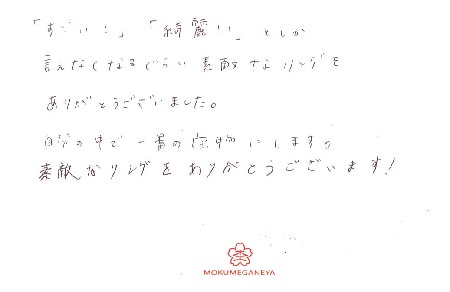 「すごい！」「綺麗!!」としか
言えなくなるぐらい素敵なリングを
ありがとうございました。
自分の中で一番の宝物にします。
素敵なリングをありがとうございます！
MOKUMEGANEYA